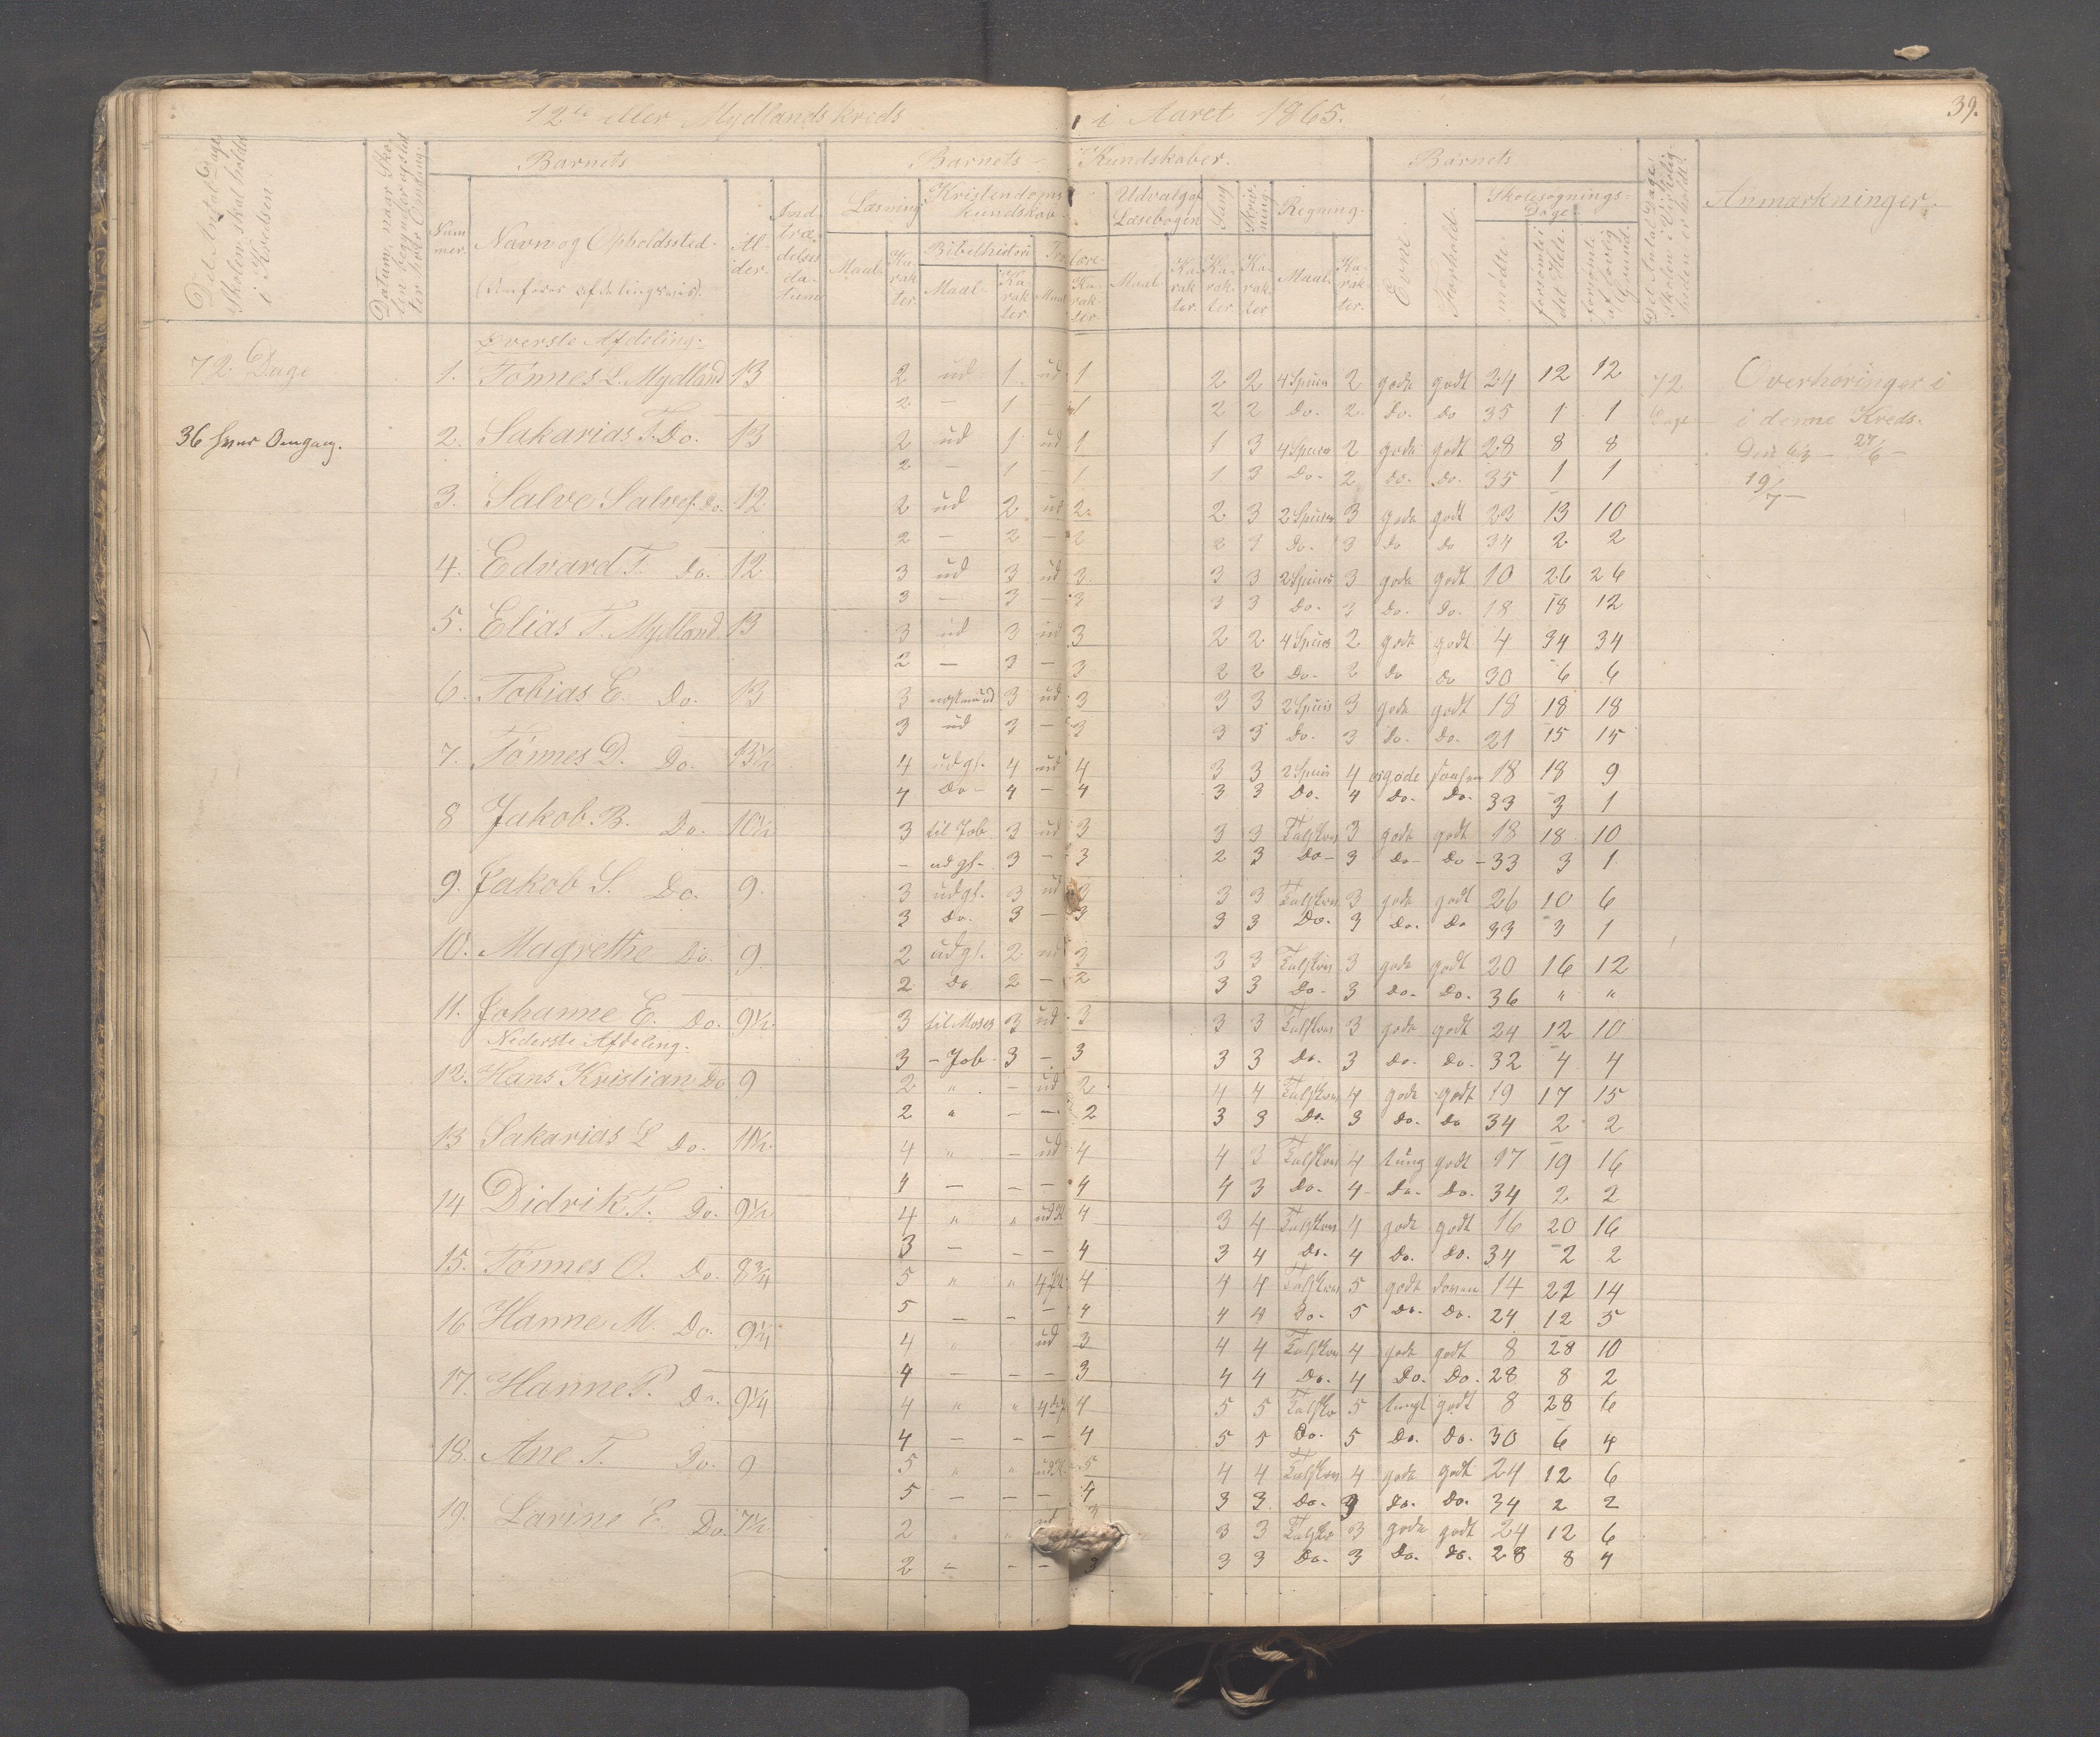 12te eller Mydlands kreds i Aaret 1865.
39.
Det Antal Dage Skolen skal holdes i Kredsen.
Datum, naar Skolen begynder og slutter hver Omgang.
Barnets
Nummer.
Navn og Opholdssted.
(Anføres afdelingsvis).
Alder.
Indtrædelsesdatum
Barnets Kundskaber.
Læsning
Maal. Karakter.
Kristendomskundskab.
Bibelhistorie
Maal. Karakter.
Troeslære.
Maal Karakter.
Udvalg af Læsebogen
Maal Karakter.
Sang Karakter.
Skrivning Karakter
Regning.
Maal. Karakter.
Barnets
Evne.
Forhold.
Skolesøgnings-Dage
mødte.
forsømte i det Hele.
forsømte af lovlig Grund.
Det Antal Dage Skolen i Virkeligheden er holdt.
Anmærkninger.
Øverste Afdeling.
72 Dage 1. Tønnes L. Mydland 13 2 ud 1 ud 1 2 2 4 Speeies 2 gode godt 24 12 12 72 Overhøringer i
2 — 1 — 1 2 2 Do. 2 do. do 35 1 1 Dage i denne Kreds.
36 hver Omgang. 2. Sakarias T. Do. 13 2 ud 1 ud 1 1 3 4 Species 2 gode godt 28 8 8 Den 6/3 — 27/6 —
2 — 1 — 1 1 3 Do. 2 do. do. 35 1 1 19/7 —
3. Salve Salves. Do. 12 2 ud 2 ud 2 2 3 2 Species 3 gode godt 23 13 10
2 — 2 — 2 2 3 Do. 3 do do 34 2 2
4. Edvard T. Do. 12 3 ud 3 ud 3 3 3 2 Species 3 gode godt 10 26 26
3 — 3 — 3 3 3 Do. 3 do. do. 18 18 12
5. Elias T. Mydland 13 3 ud 3 ud 3 2 2 4 Species 2 gode godt 4 34 34
2 — 3 — 3 2 2 Do. 2 do do 30 6 6
6. Tobias E. Do. 13 3 3 ud 3 3 3 2 Species 3 gode godt 18 18 18
3 ud 3 — 3 3 3 Do. 3 do. do. 21 15 15
7. Tønnes D. Do. 13½ 4 udgl. 4 ud 4 3 3 2 Species 4 18 18 9
4 Do 4 — 4 3 3 Do. 4 do. do. 33 3 1
8 Jakob B. Do. 10½ 3 til Job 3 ud 3 3 3 3 gode godt 18 18 10
— udgl. 3 — 3 2 3 Do — 3 do — do — 33 3 1
9. Jakob S. Do. 9. 3 udgl. 3 ud 3 3 3 3 gode godt 26 10 6
3 Do. 3 — 3 3 3 Do. 3 do. do 33 3 1
10. Magrethe Do. 9. 2 udgl. 2 ud 3 3 3 3 gode godt 20 16 12
2 Do 2 — 2 3 3 Do — 3 do. do. 36 " "
11. Johanne E. Do. 9½. 3 til Moses 3 ud 3 3 3 3 gode godt 24 12 10
Nederste Afdeling.
3 — Job 3 — 3 3 3 Do. 3 do. do. 32 4 4
12. Hans Kristian Do 9 2 " — ud 2 4 4 4 gode godt 19 17 15
2 " — — 2 3 3 Do. 3 do. do 34 2 2
13 Sakarias L Do. 11½. 4 " — ud 4 4 3 4 tung godt 17 19 16
4 — — — 4 4 3 Do. 4 do. do. 34 2 2
14 Didrik T. Do. 9½ 4 " " 4 3 4 4 gode godt 16 20 16
3 — — — 4 3 4 Do. 4 do. do. 34 2 2
15. Tønnes O. Do. 8¾ 5 " " 4 4 4 5 gode doven 14 22 14
5 — — — 4 4 4 Do. 5 do. do. 24 12 5
16 Hanne M. Do. 9¼ 4 " ud 3 4 4 4 gode godt 8 28 10
4 — — — 3 4 4 Do. 4 Do. Do. 28 8 2
17. Hanne P. Do. 9¼ 4 " " 4 5 5 5 tungt godt 8 28 6
4 — — — 4 5 5 Do. 5 Do. do. 30 6 4
18. Ane T. Do. 9 5 " " 5 4 4 4 gode godt 24 12 6
5 — — — 4 3 3 Do. 3 do. do. 34 2 2
19. Larine E. Do. 7½. 2 " " ud 3 3 3 3 gode godt 24 12 6
2 — — — 3 3 3 Do. 3 Do. do. 28 8 4